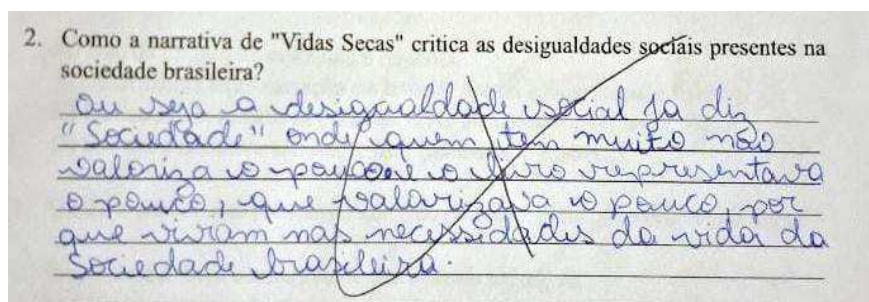 2. Como a narrativa de "Vidas Secas" critica as desigualdades sociais presentes na
sociedade brasileira?
Ou seja a desigualdade social ja diz
"Sociedade" onde quem tem muito não
valoriza o pouco e o livro representava
o pouco, que valorizava o pouco, por
que viviam nas necessidades da vida da
Sociedade brasileira.